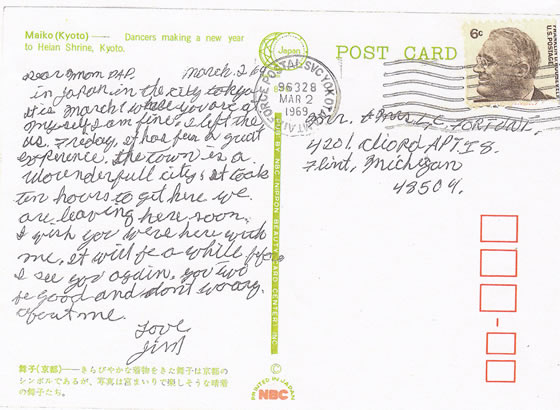 Maiko (Kyoto) — Dancers making a new year
to Heian Shrine, Kyoto.
Japan
POST CARD
6¢
U.S. POSTAGE
AIR FORCE POSTAL SVC
96328
MAR 2
1969
Dear Mom DAD. March. 2 69
in Japan in the city tokyo
it is March 1 where you are at
myself I am fine. I left the
us. Friday, it has been a great
experience. the town is a
wonderfull city, it took
ten hours to get here we
are leaving here soon.
I wish you were here with
me. it will be a while before
I see you again. you two
be good and dont worry.
about me.
Love
Jim
Mr. & Mrs L.C.
4201 APT 18.
Flint, Michigan
48504.
PUB. BY NBC NIPPON BEAUTYCARD CENTER, INC.
舞子(京都)——きらびやかな着物をきた舞子は京都の
シンボルであるが、写真は宮まいりで楽しそうな晴着
の舞子たち。
©
PRINTED IN JAPAN
NBC